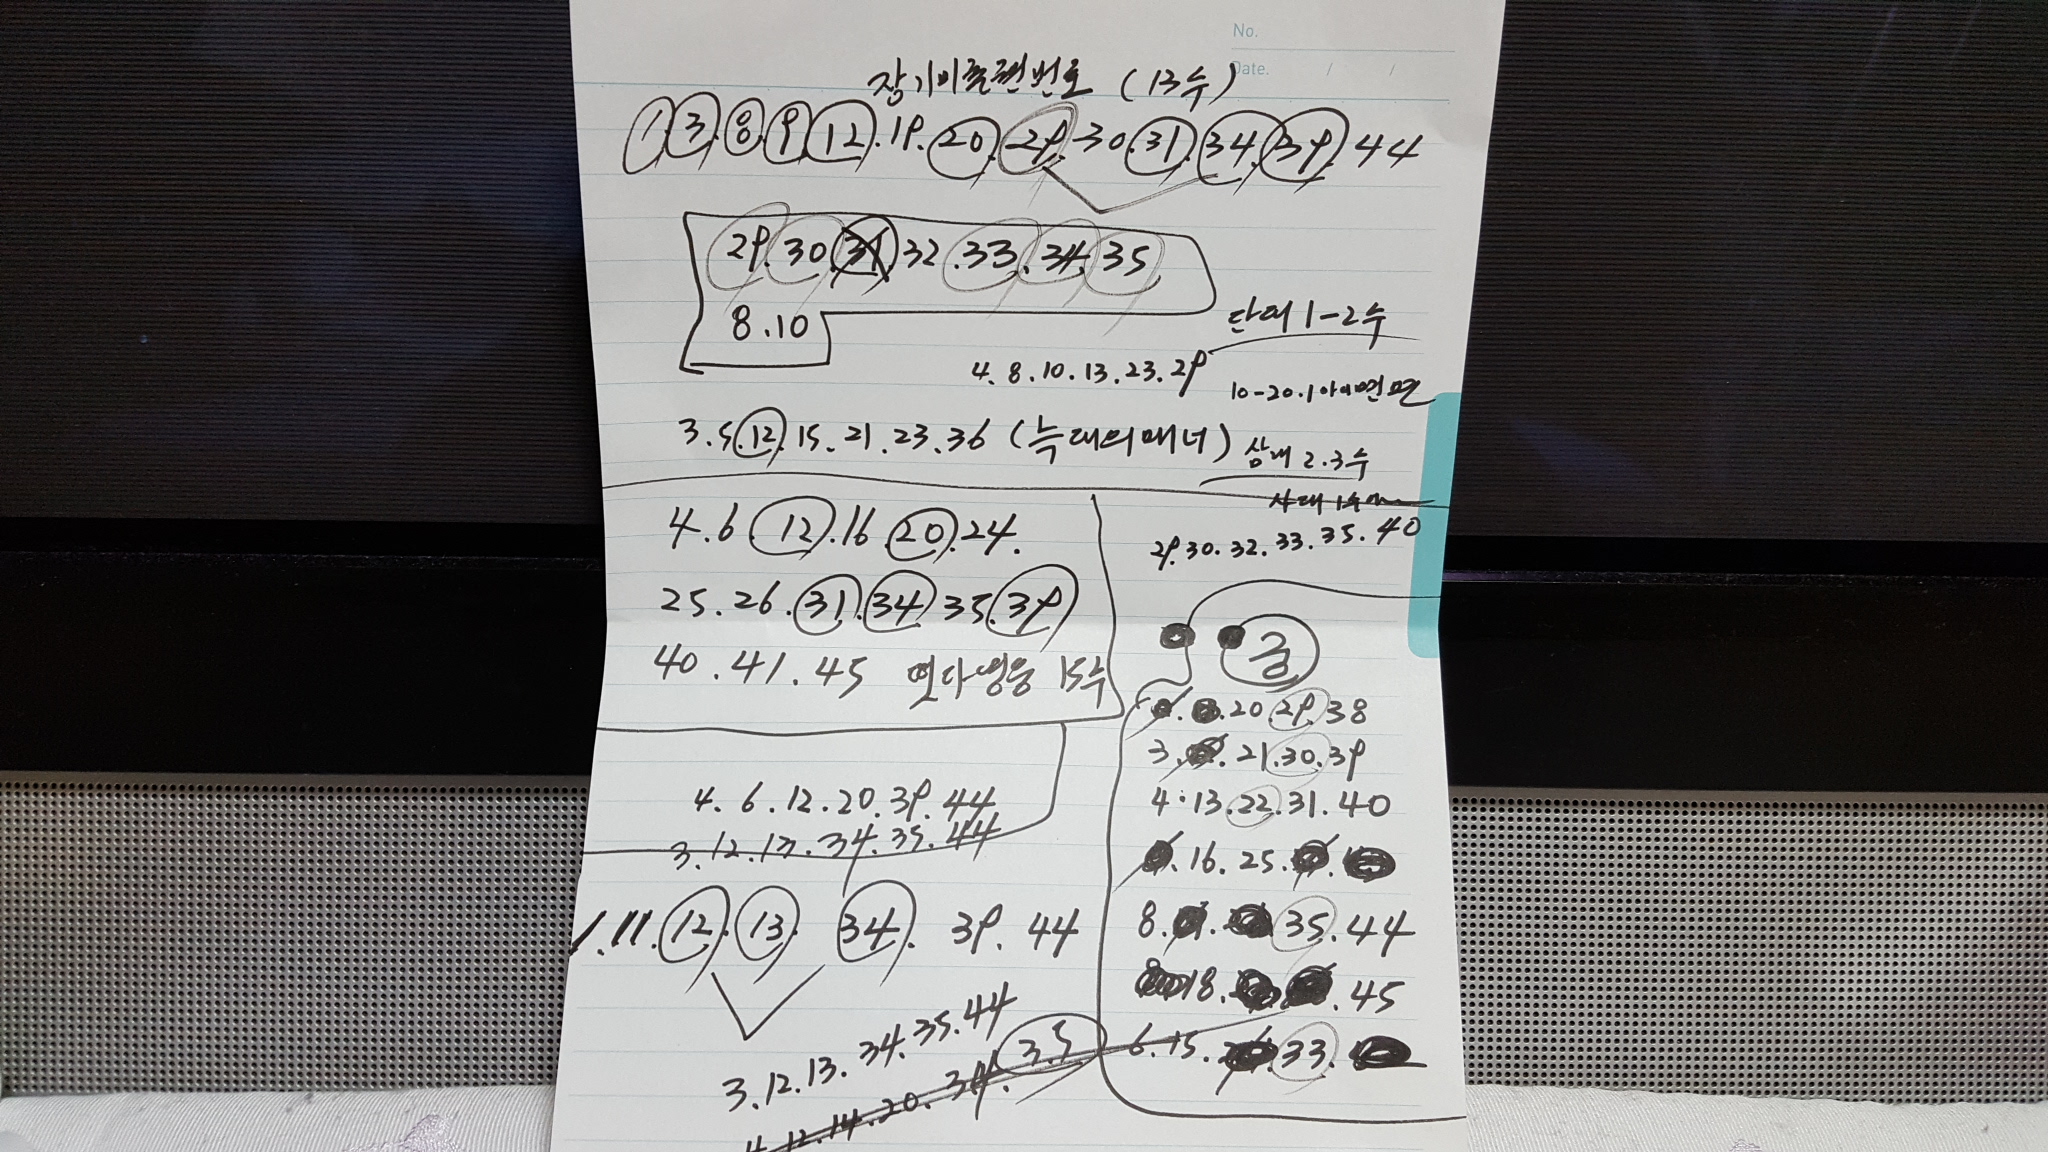 No.
Date. / /
장기미출현번호 (13수)
1.3.8.9.12.19.20.29.30.31.34.39.44
29.30.31.32.33.34.35.
8.10
단대 1-2수
4.8.10.13.23.29
10-20.1아이면
3.5.12.15.21.23.36 (늑대의매너)
삼대 2.3수
사대 1수
4.6.12.16.20.24.
29.30.32.33.35.40
25.26.31.34.35.39
40.41.45 15수
금
20.29.38
3. 21.30.39
4.13.22.31.40
16.25.
8. 35.44
18. 45
6.15. 33.
4.6.12.20.39.44
3.12.13.34.35.44
1.11.12.13.34.39.44
3.12.13.34.35.44
4.12.14.20.39.3.5